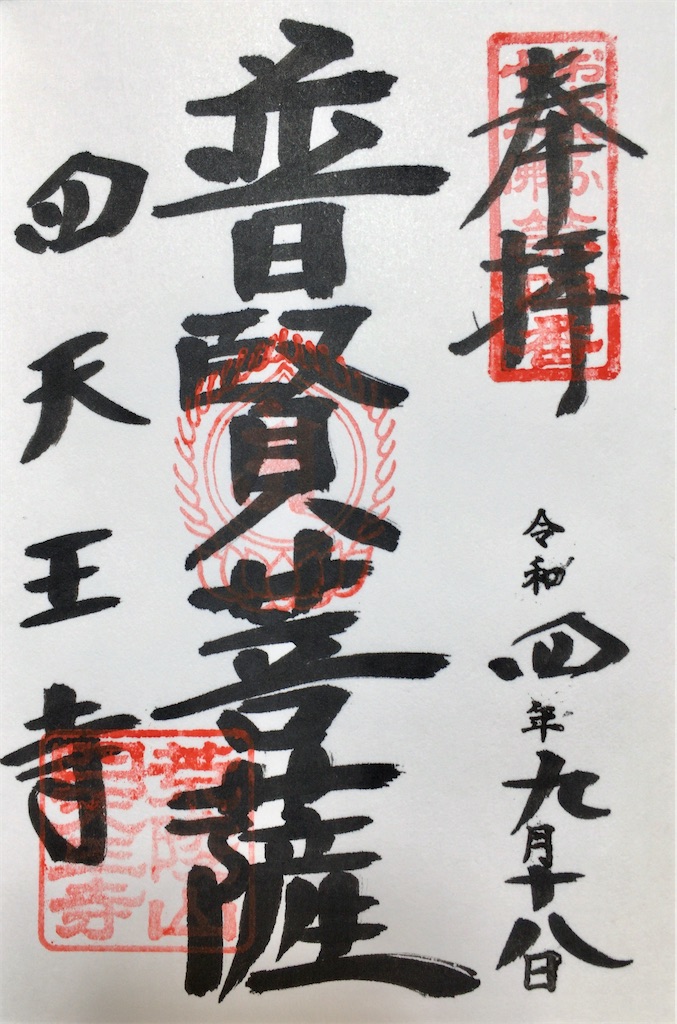 奉拝
令和四年九月十八日
普賢菩薩
四天王寺
四天王寺